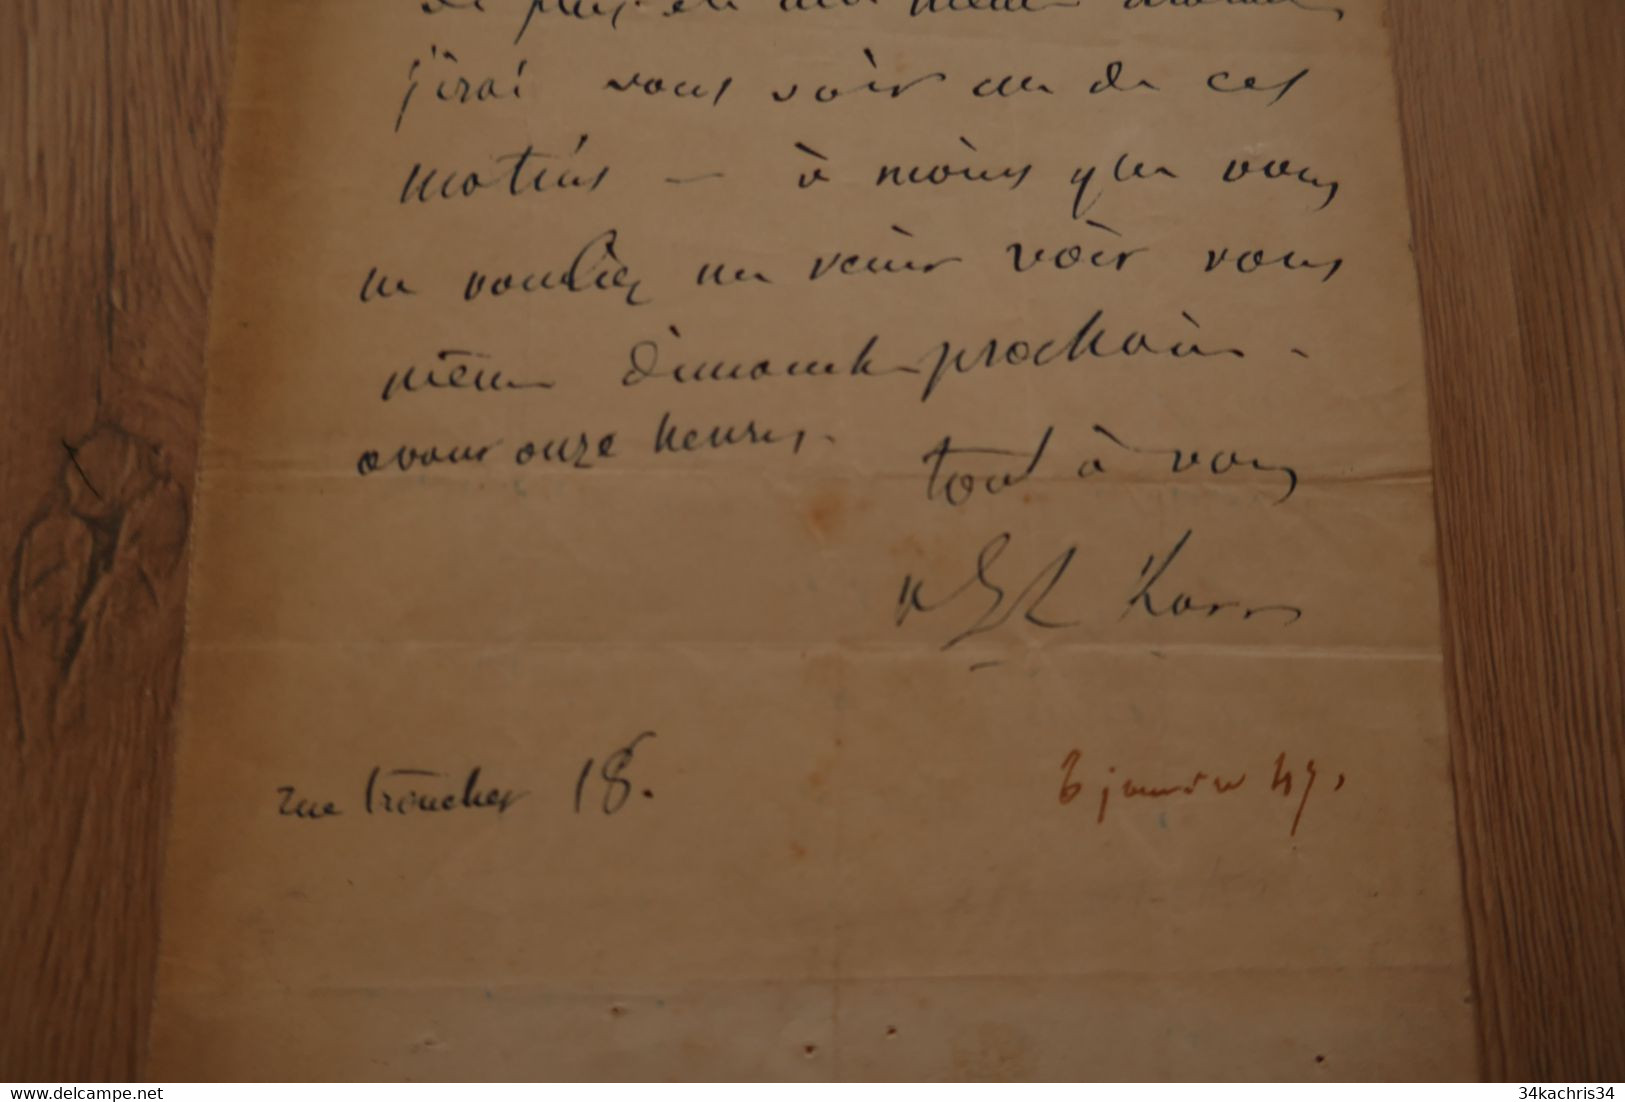 j'irai vous voir un de ces
matins — à moins que vous
ne vouliez me venir voir vous
même dimanche prochain -
avant onze heures.
tout à vous
Alph Karr
rue tronchet 18.
6 janvier 47.
delcampe.net
34kachris34